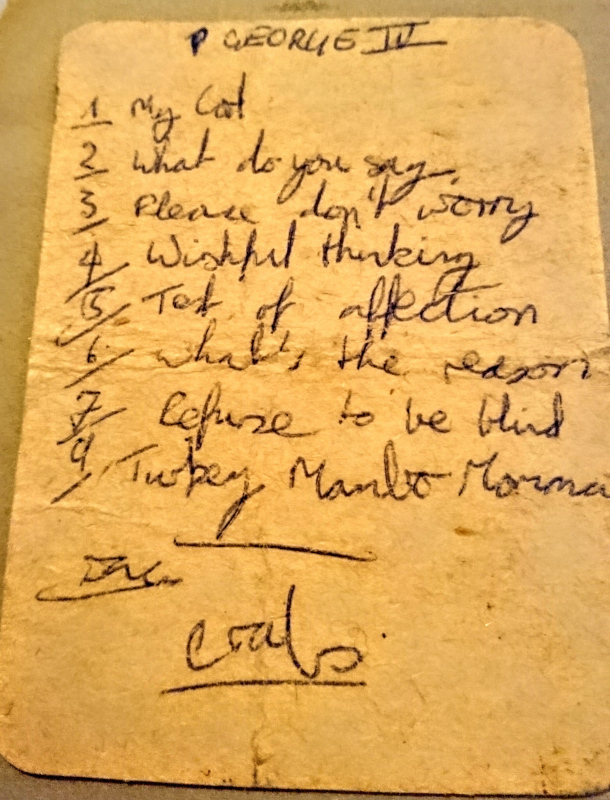 P GEORGE IV
1 My Cool
2 What do you say
3 Please don't worry
4 Wishful thinking
5 Test of affection
6 What's the reason
7 Refuse to be blind
9 Turkey Mambo Momma
Crabs